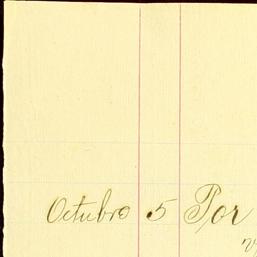 Octubro 5 Por